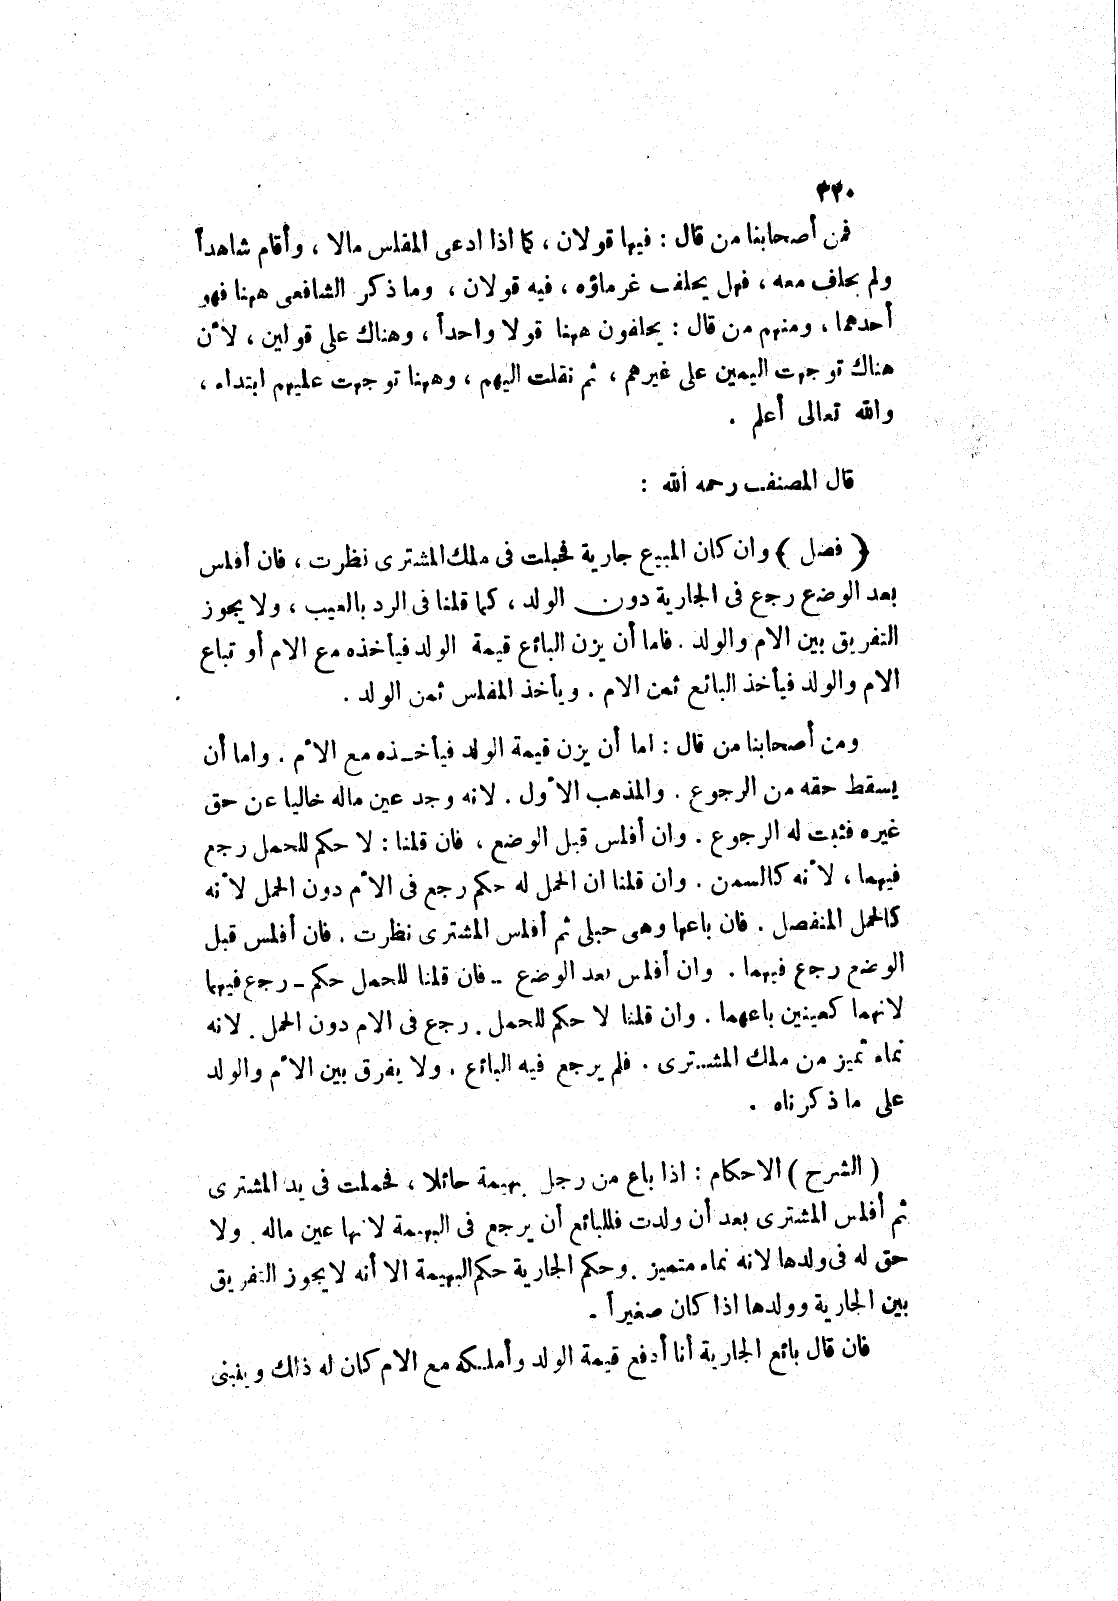 ٣٢٠
فمن أصحابنا من قال : فيها قولان ، كما اذا ادعى المفلس مالا ، وأقام شاهداً
ولم يحلف معه ، فهل يحلف غرماؤه ، فيه قولان ، وما ذكر الشافعى ههنا فهو
أحدهما ، ومنهم من قال : يحلفون ههنا قولا واحداً ، وهناك على قولين ، لأن
هناك توجهت اليمين على غيرهم ، ثم نقلت اليهم ، وههنا توجهت عليهم ابتداء ،
والله تعالى أعلم .
قال المصنف رحمه الله :
( فصل ) وان كان المبيع جارية فحبلت فى ملك المشترى نظرت ، فان أفلس
بعد الوضع رجع فى الجارية دون الولد ، كما قلنا فى الرد بالعيب ، ولا يجوز
التفريق بين الام والولد . فاما أن يزن البائع قيمة الولد فيأخذه مع الام أو تباع
الام والولد فيأخذ البائع ثمن الام . ويأخذ المفلس ثمن الولد .
ومن أصحابنا من قال : اما أن يزن قيمة الولد فيأخــذه مع الأم . واما أن
يسقط حقه من الرجوع . والمذهب الأول . لانه وجد عين ماله خاليا عن حق
غيره فثبت له الرجوع . وان أفلس قبل الوضع ، فان قلنا : لا حكم للحمل رجع
فيهما ، لأنه كالسمن . وان قلنا ان الحمل له حكم رجع فى الأم دون الحمل لأنه
كالحمل المنفصل . فان باعها وهى حبلى ثم أفلس المشترى نظرت . فان أفلس قبل
الوضع رجع فيهما . وان أفلس بعد الوضع - فان قلنا للحمل حكم - رجع فيهما
لانهما كعينين باعهما . وان قلنا لا حكم للحمل . رجع فى الام دون الحمل . لانه
نماء تميز من ملك المشــترى . فلم يرجع فيه البائع . ولا يفرق بين الأم والولد
على ما ذكرناه .
( الشرح ) الاحكام : اذا باع من رجل بهيمة حائلا ، فحملت فى يد المشترى
ثم أفلس المشترى بعد أن ولدت فللبائع أن يرجع فى البهيمة لانها عين ماله . ولا
حق له فى ولدها لانه نماء متميز . وحكم الجارية حكم البهيمة الا أنه لا يجوز التفريق
بين الجارية وولدها اذا كان صغيراً .
فان قال بائع الجارية أنا أدفع قيمة الولد وأملكه مع الام كان له ذلك وينبنى